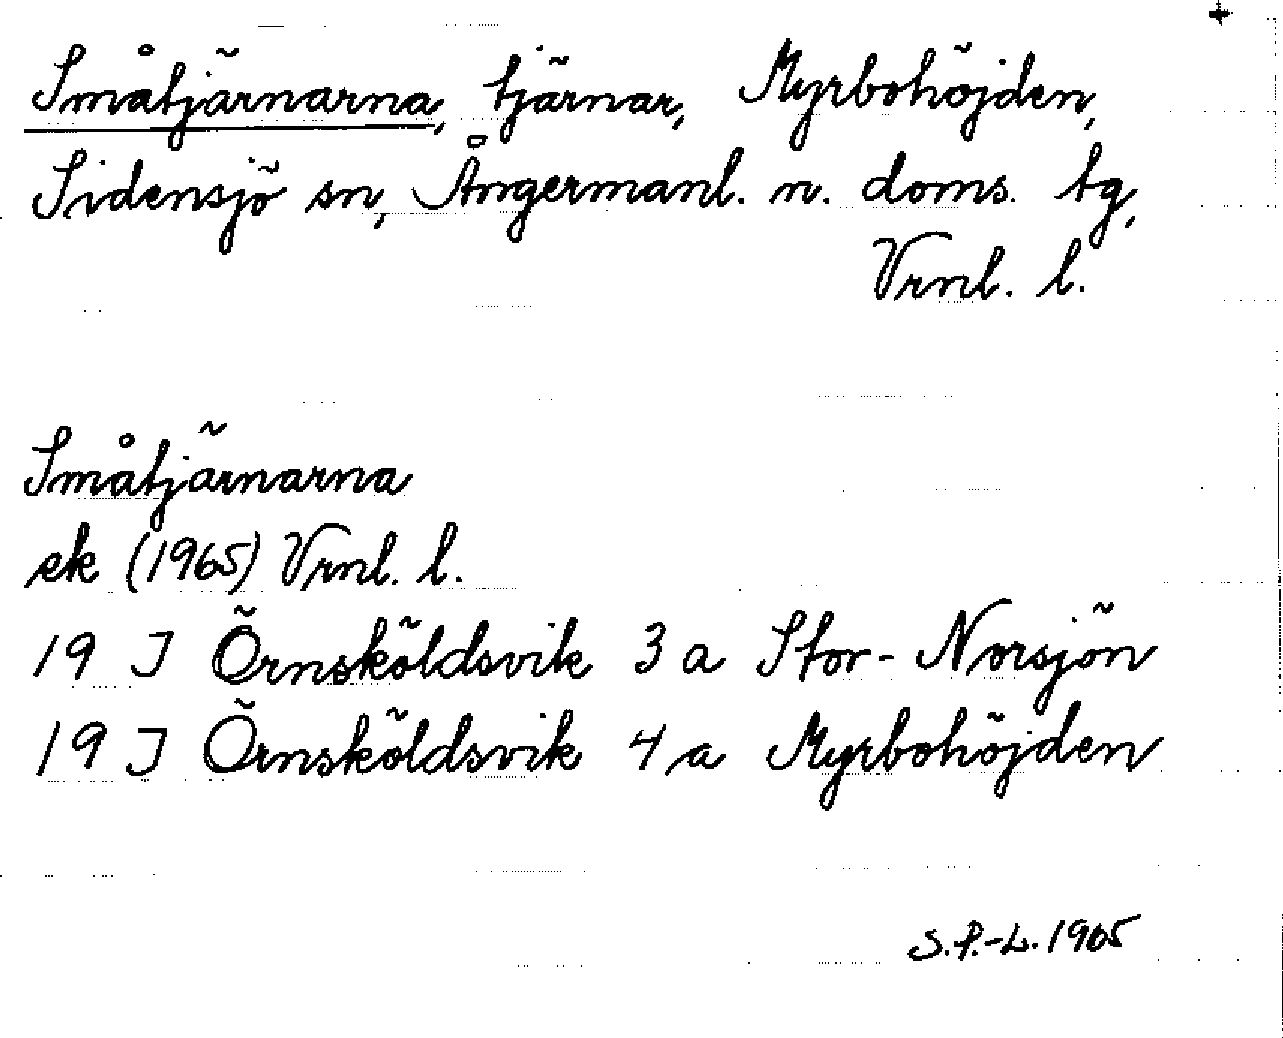 Småtjärnarna, tjärnar, Myrbohöjden,
Sidensjö sn, Ångermanl. n. doms. tg,
Vrnl. l.
Småtjärnarna
ek (1965) Vrnl. l.
19 J Örnsköldsvik 3 a Stor-Norsjön
19 J Örnsköldsvik 4 a Myrbohöjden
S.P.-L. 1965